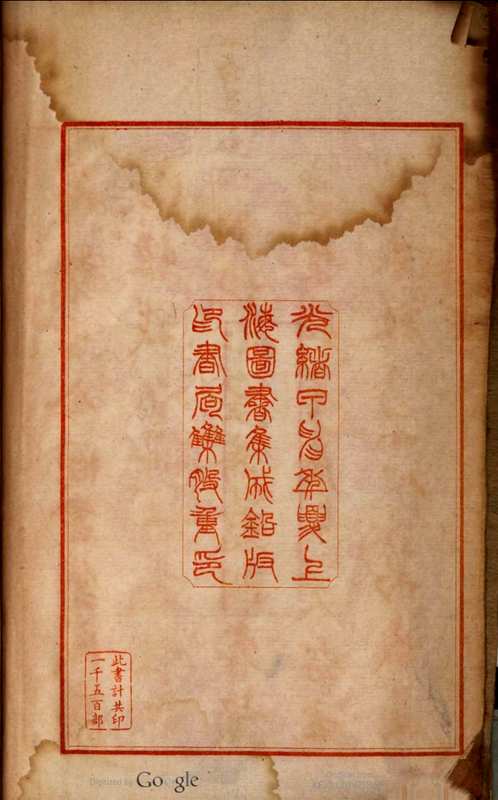 光緒甲申年夏上
海圖書集成鉛版
印書局雧股重印
此書計共印
一千五百部
Digitized by Google